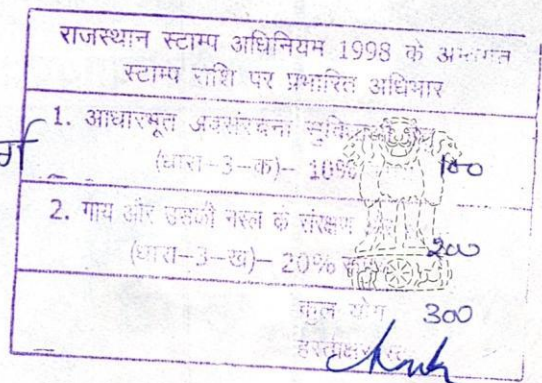 राजस्थान स्टाम्प अधिनियम 1998 के अन्तर्गत
स्टाम्प राशि पर प्रभारित अधिभार
1. आधारभूत अवसंरचना
(धारा-3-क)- 10% 100
2. गाय और उसकी नस्ल के संरक्षण
(धारा-3-ख)- 20% 200
कुल योग 300